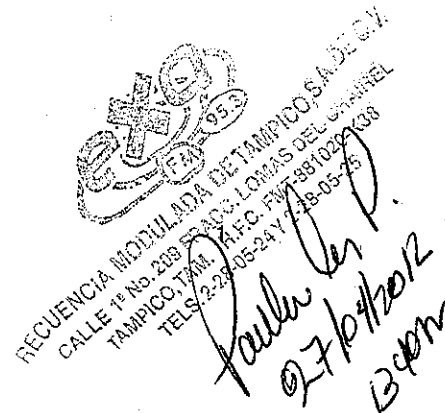 exa
FM 95.3
RECUENCIA MODULADA DE TAMPICO, S.A. DE C.V.
CALLE 1ª No. 209 FRACC. LOMAS DEL CHAIREL
TAMPICO, TAM. R.F.C. FMT-881020
TELS. 2-28-05-24 Y 2-28-05-25
27/04/2012